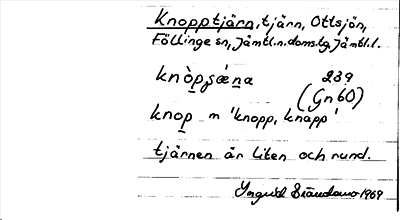 Knopptjärn, tjärn, Ottsjön,
Föllinge sn, Jämtl.n.doms.lg Jämtl.l.
knòpsǽna 239
(Gn60)
knop m 'knopp, knapp'
tjärnen är liten och rund.
Ingrid 1969